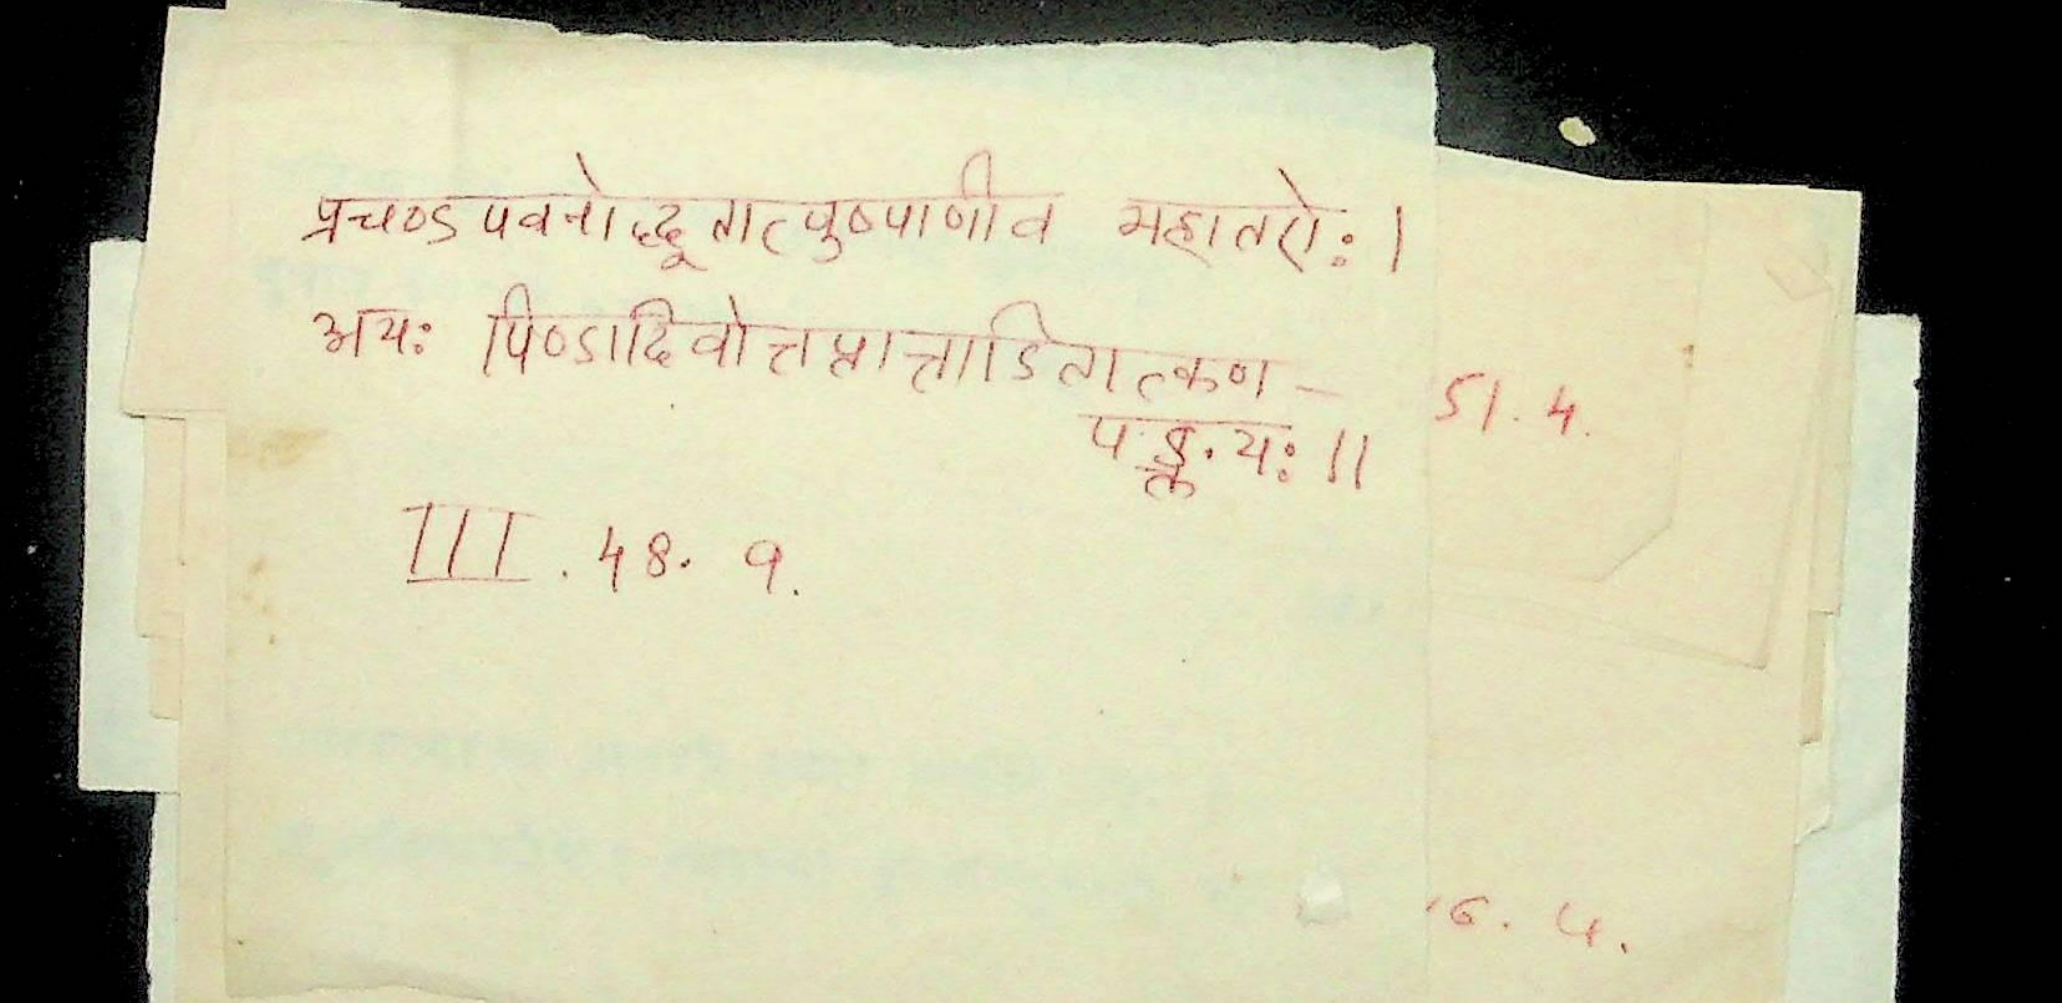 प्रचण्ड पवनोद्धूतात्पुष्पाणीव महातरोः।
अयः पिण्डादिवोत्तप्तात्ताडितात्कण-
पङ्क्तयः॥
51. 4.
III. 48. 9.
6. 4.